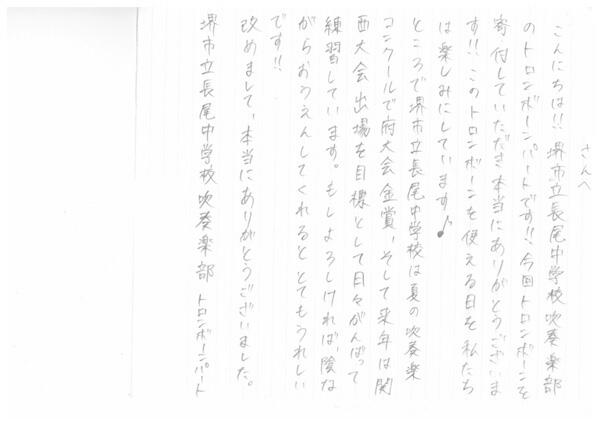 さんへ
こんにちは!!堺市立長尾中学校吹奏楽部
のトロンボーンパートです!!今回トロンボーンを
寄付していただき本当にありがとうございま
す!!このトロンボーンを使える日を私たち
は楽しみにしています♪
ところで堺市立長尾中学校は夏の吹奏楽
コンクールで府大会金賞、そして来年は関
西大会出場を目標として日々がんばって
練習しています。もしよろしければ、陰な
がらおうえんしてくれるととてもうれしい
です!!
改めまして、本当にありがとうございました。
堺市立長尾中学校吹奏楽部トロンボーンパート